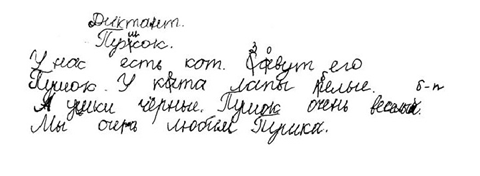 Диктант.
Пушок.
У нас есть кот. Зовут его
Пушок. У кота лапы белые. б-п
А ушки чёрные. Пушок очень веселый.
Мы очень любим Пушка.